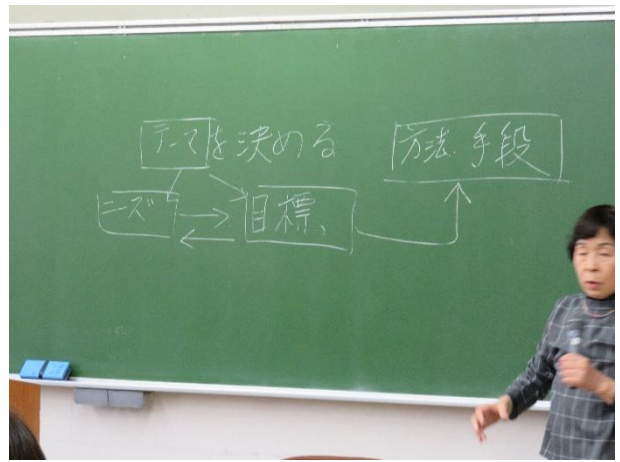 テーマを決める
方法・手段
ニーズ
目標、